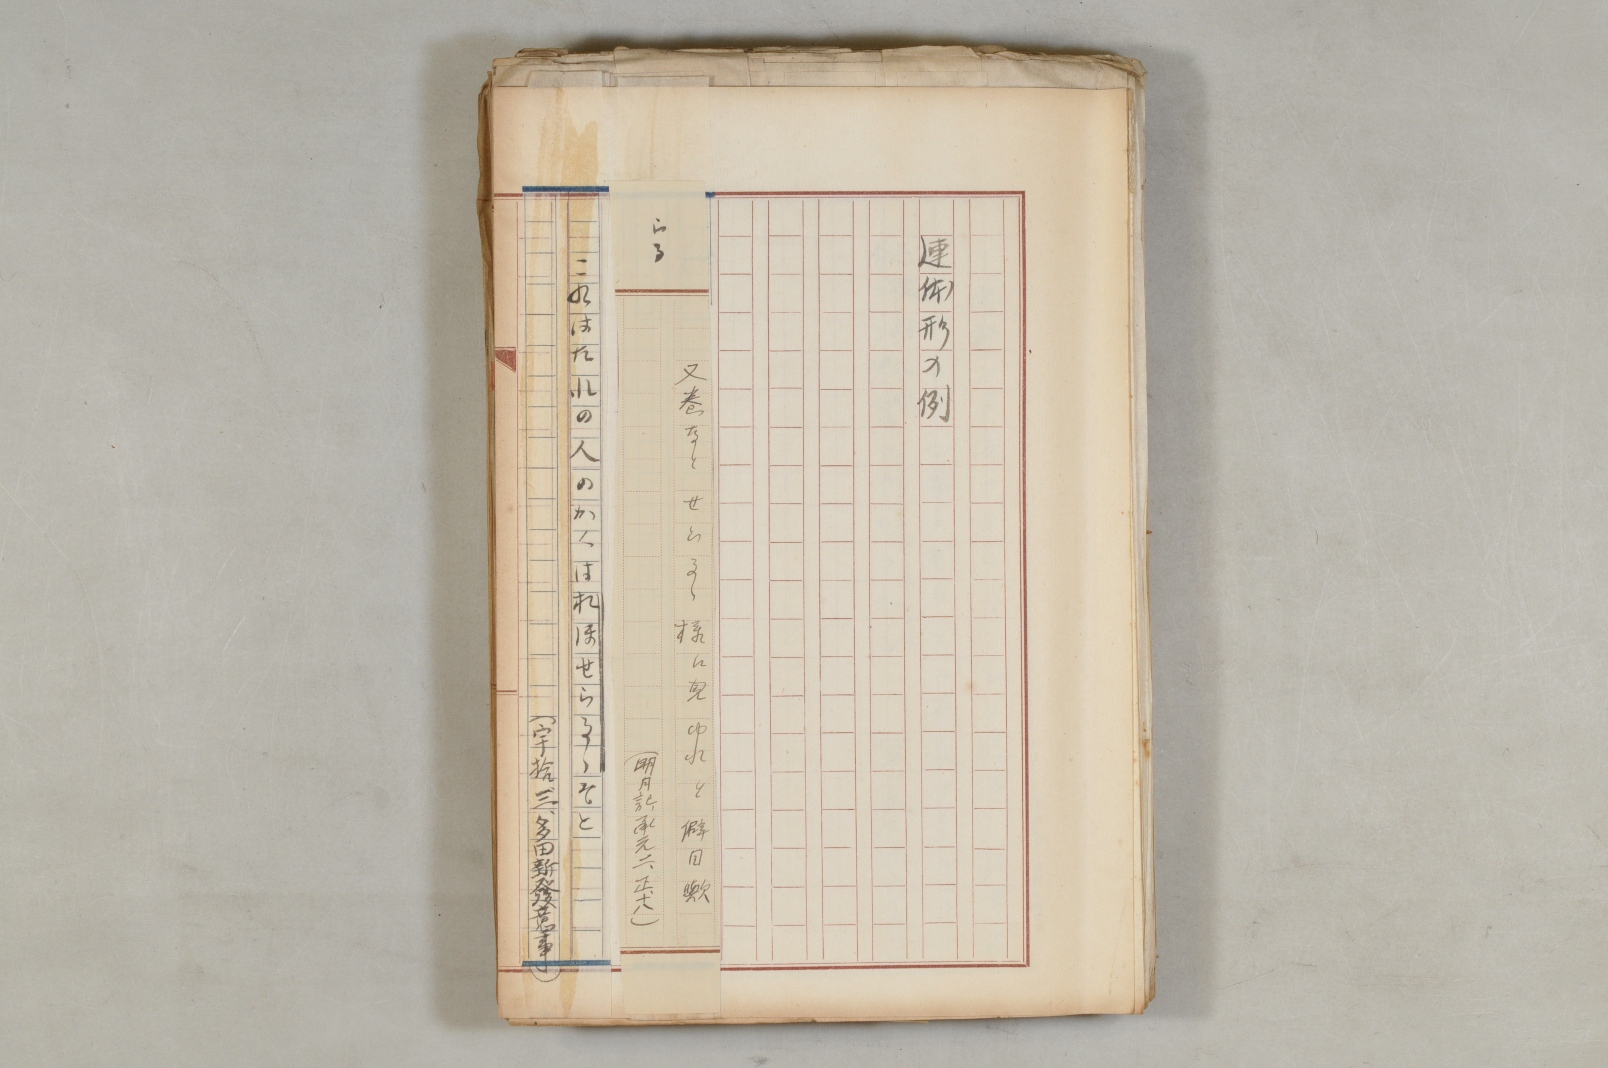 連体形の例
らる
又巻なとせらるゝ様に見ゆれと僻目歟
(明月記、承元二、正、十八)
これはたれの人のかくはおほせらるゝそと
(宇拾三、多田新發意事)